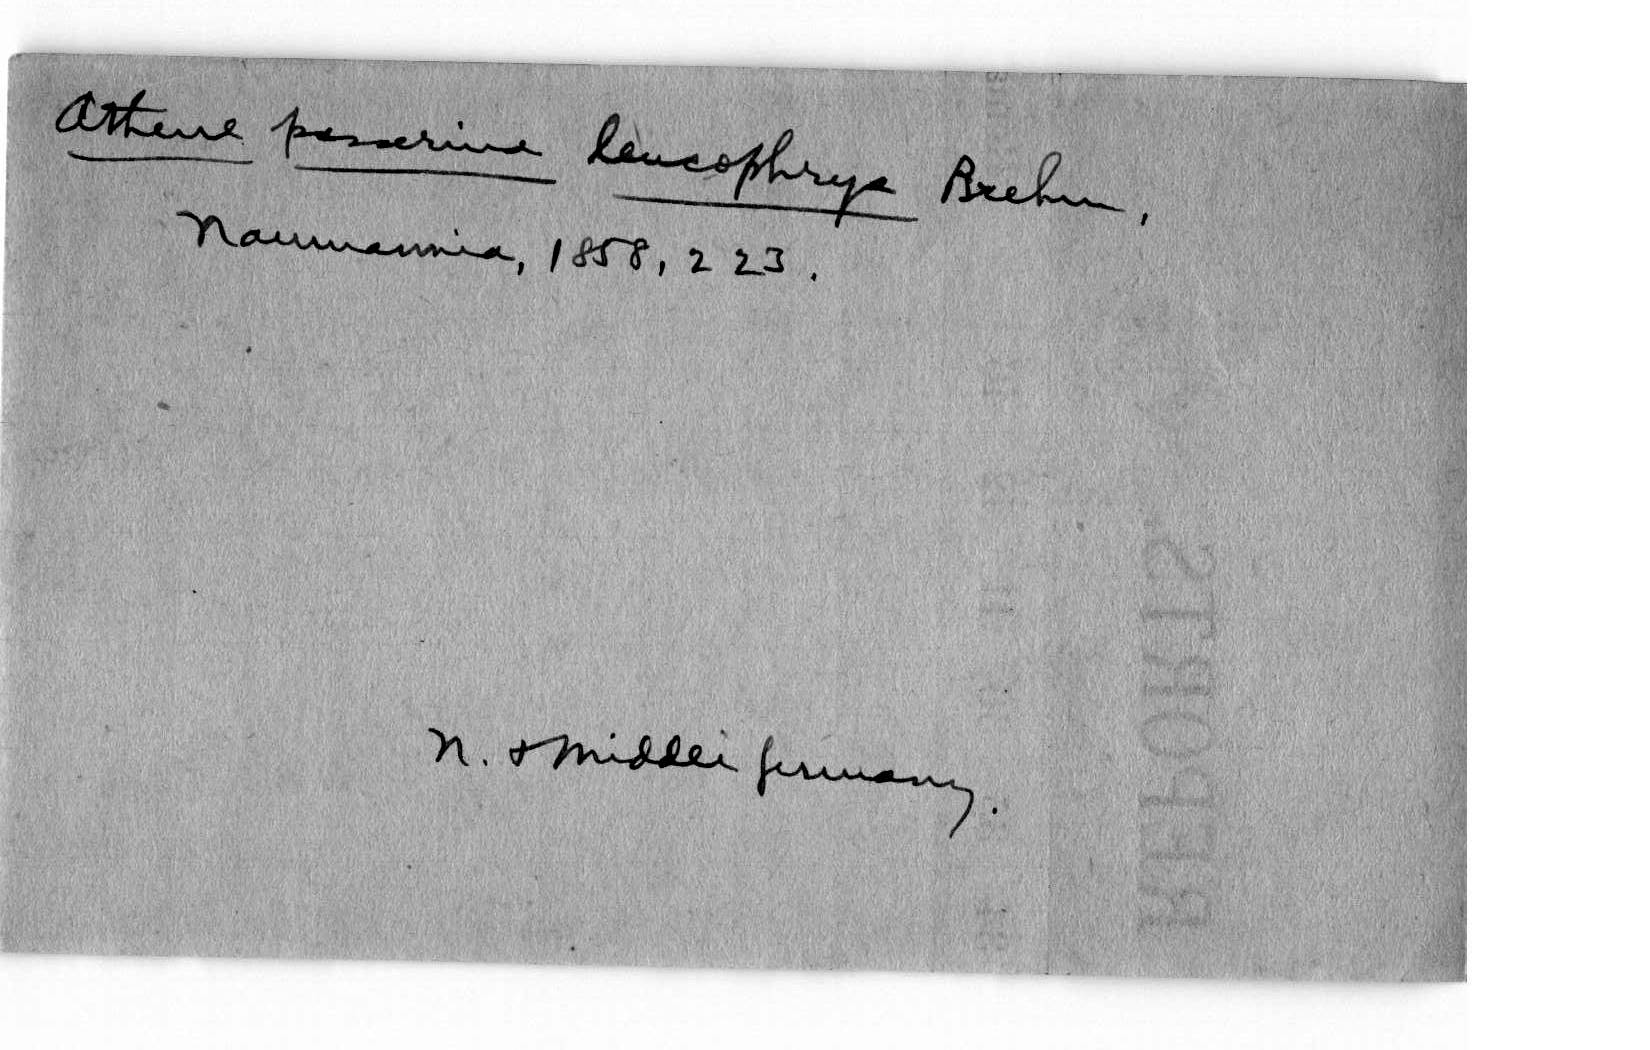 Athene passerina leucophrys Brehm,
Naumannia, 1858, 223.
N. & Middle Germany.
REPORTS